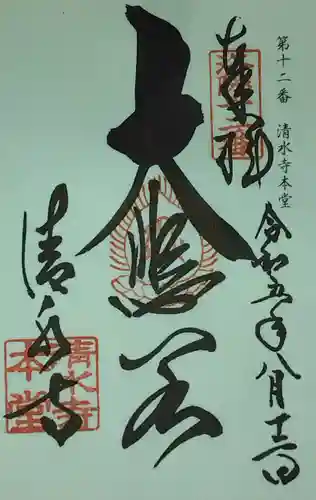 第十二番 清水寺本堂
奉拝
令和五年八月十三日
大悲閣
清水寺
清水寺
本堂